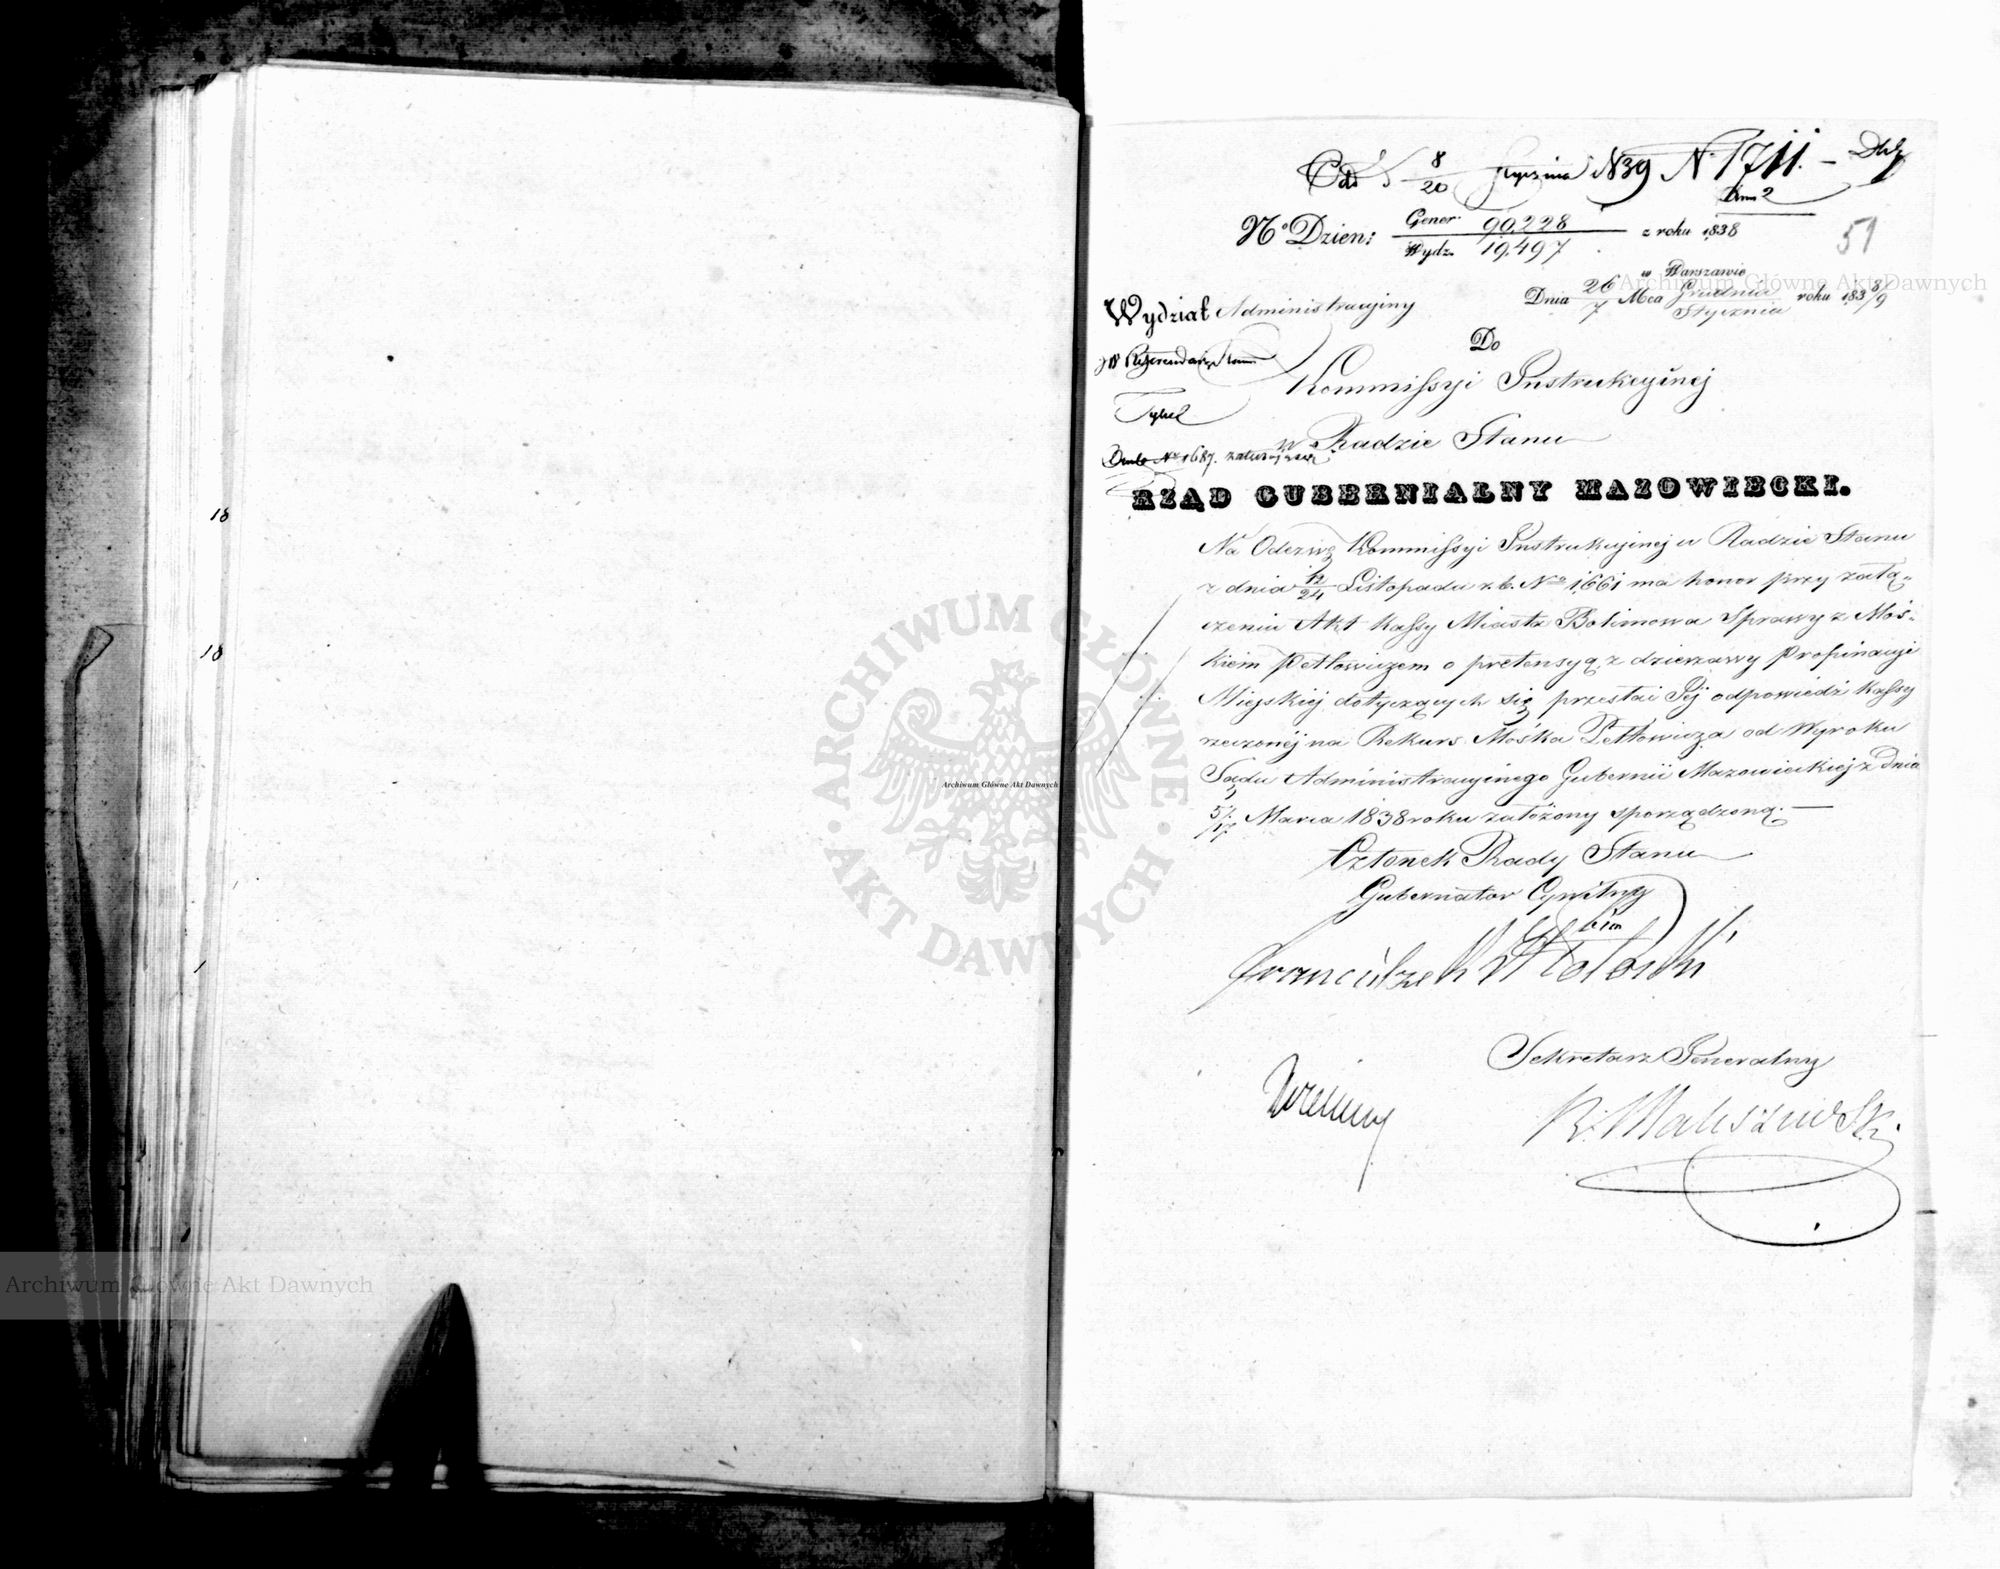 8/20 Stycznia 839 N. 1711. –
Anx 2
No Dzien: Gener. 90,228 / Wydz. 19,497 z roku 1838
51
w Warszawie
Wydział Administracyjny
Dnia 26/7 Mca Grudnia/Stycznia roku 1838/9
Do
JW Referendarz Stanu
Kommissyi Instrukcyinej
Tykel
w Radzie Stanu
No 1687.
RZĄD GUBERNIALNY MAZOWIECKI.
Na Odezwę Kommissyi Instrukcyinej w Radzie Stanu
z dnia 12/24 Listopada r. b. No 1661 ma honor przy załą-
czeniu Akt Kassy Miasta Bolimowa Sprawy z Moś-
kiem Petłowiczem o pretensyą z dzierzawy Propinacyi
Miejskiéj dotyczących się przesłać Jéj odpowiedź Kassy
rzeczonéj na Rekurs Mośka Petłowicza od Wyroku
Sądu Administracyinego Gubernii Mazowieckiej z dnia
5/17 Marca 1838 roku założony sporządzoną. —
Członek Rady Stanu
Gubernator Cywilny
Sekretarz Generalny
R. Maliszewski
18
18
1
ARCHIWUM GŁÓWNE AKT DAWNYCH
Archiwum Główne Akt Dawnych
Archiwum Główne Akt Dawnych
Archiwum Główne Akt Dawnych